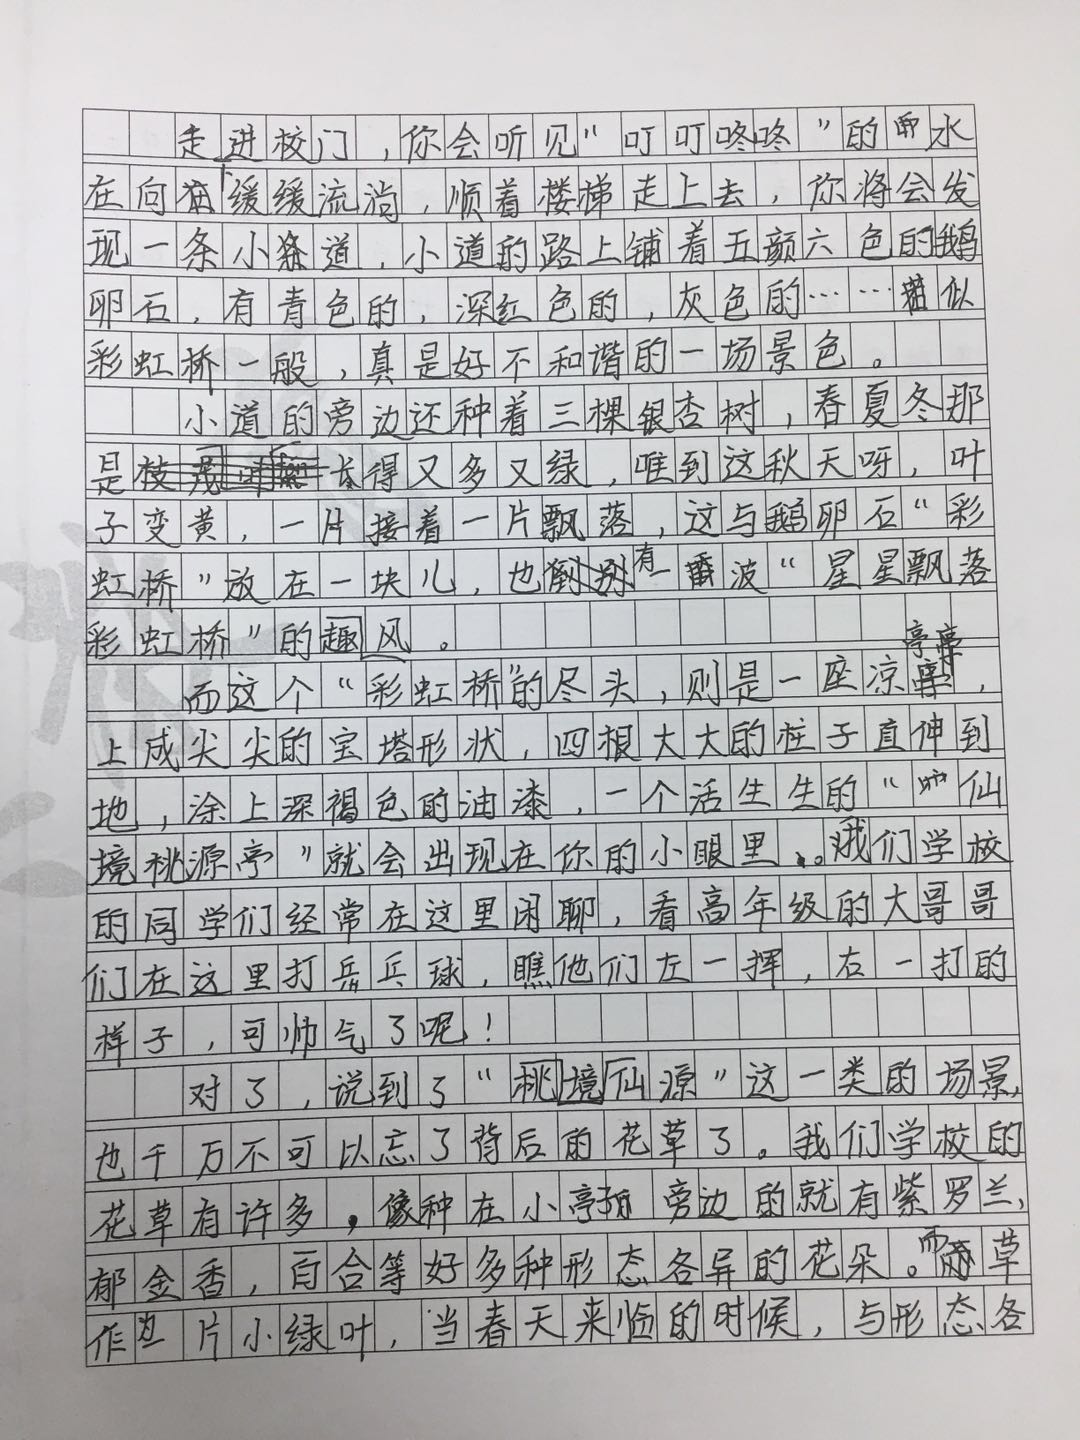 走进校门，你会听见“叮叮咚咚”的雨水
在向缓缓流淌，顺着楼梯走上去，你将会发
现一条小道，小道的路上铺着五颜六色的鹅
卵石，有青色的，深红色的，灰色的……若似
彩虹桥一般，真是好不和谐的一场景色。
小道的旁边还种着三棵银杏树，春夏冬那
是长得又多又绿，唯到这秋天呀，叶
子变黄，一片接着一片飘落，这与鹅卵石“彩
虹桥”放在一块儿，也有一番波“星星飘落
彩虹桥”的趣风。
而这个“彩虹桥”的尽头，则是一座凉亭，
上成尖尖的宝塔形状，四根大大的柱子直伸到
地，涂上深褐色的油漆，一个活生生的“仙
境桃源亭”就会出现在你的小眼里。我们学校
的同学们经常在这里闲聊，看高年级的大哥哥
们在这里打乒乓球，瞧他们左一挥，右一打的
样子，可帅气了呢！
对了，说到了“桃境仙源”这一类的场景，
也千万不可以忘了背后的花草了。我们学校的
花草有许多，像种在小亭旁边的就有紫罗兰，
郁金香，百合等好多种形态各异的花朵。而草
作为一片小绿叶，当春天来临的时候，与形态各